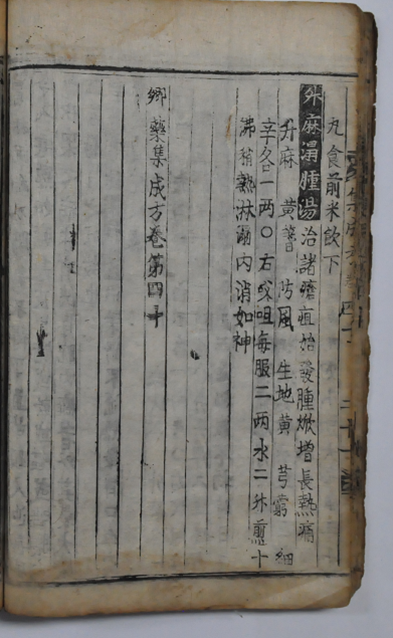 丸食前米飮下
升麻溻腫湯治諸瘡疽始發腫焮增長熱痛
升麻 黄耆 防風 生地黄 芎藭 細
辛各一两〇右㕮咀每服二两水二升煎十
沸稍熱淋溻內消如神
鄉藥集成方卷第四十